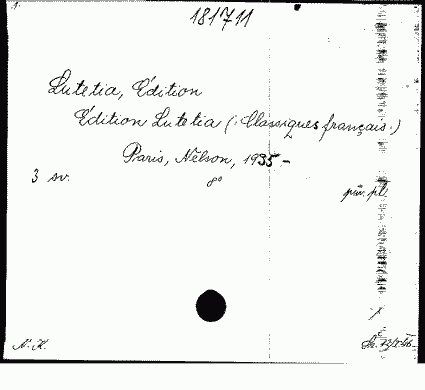 181711
Lutetia, Édition
Édition Lutetia (: Classiques français :)
Paris, Nelson, 1935 -
3 sv. 8°
přír. pl.
N. K.